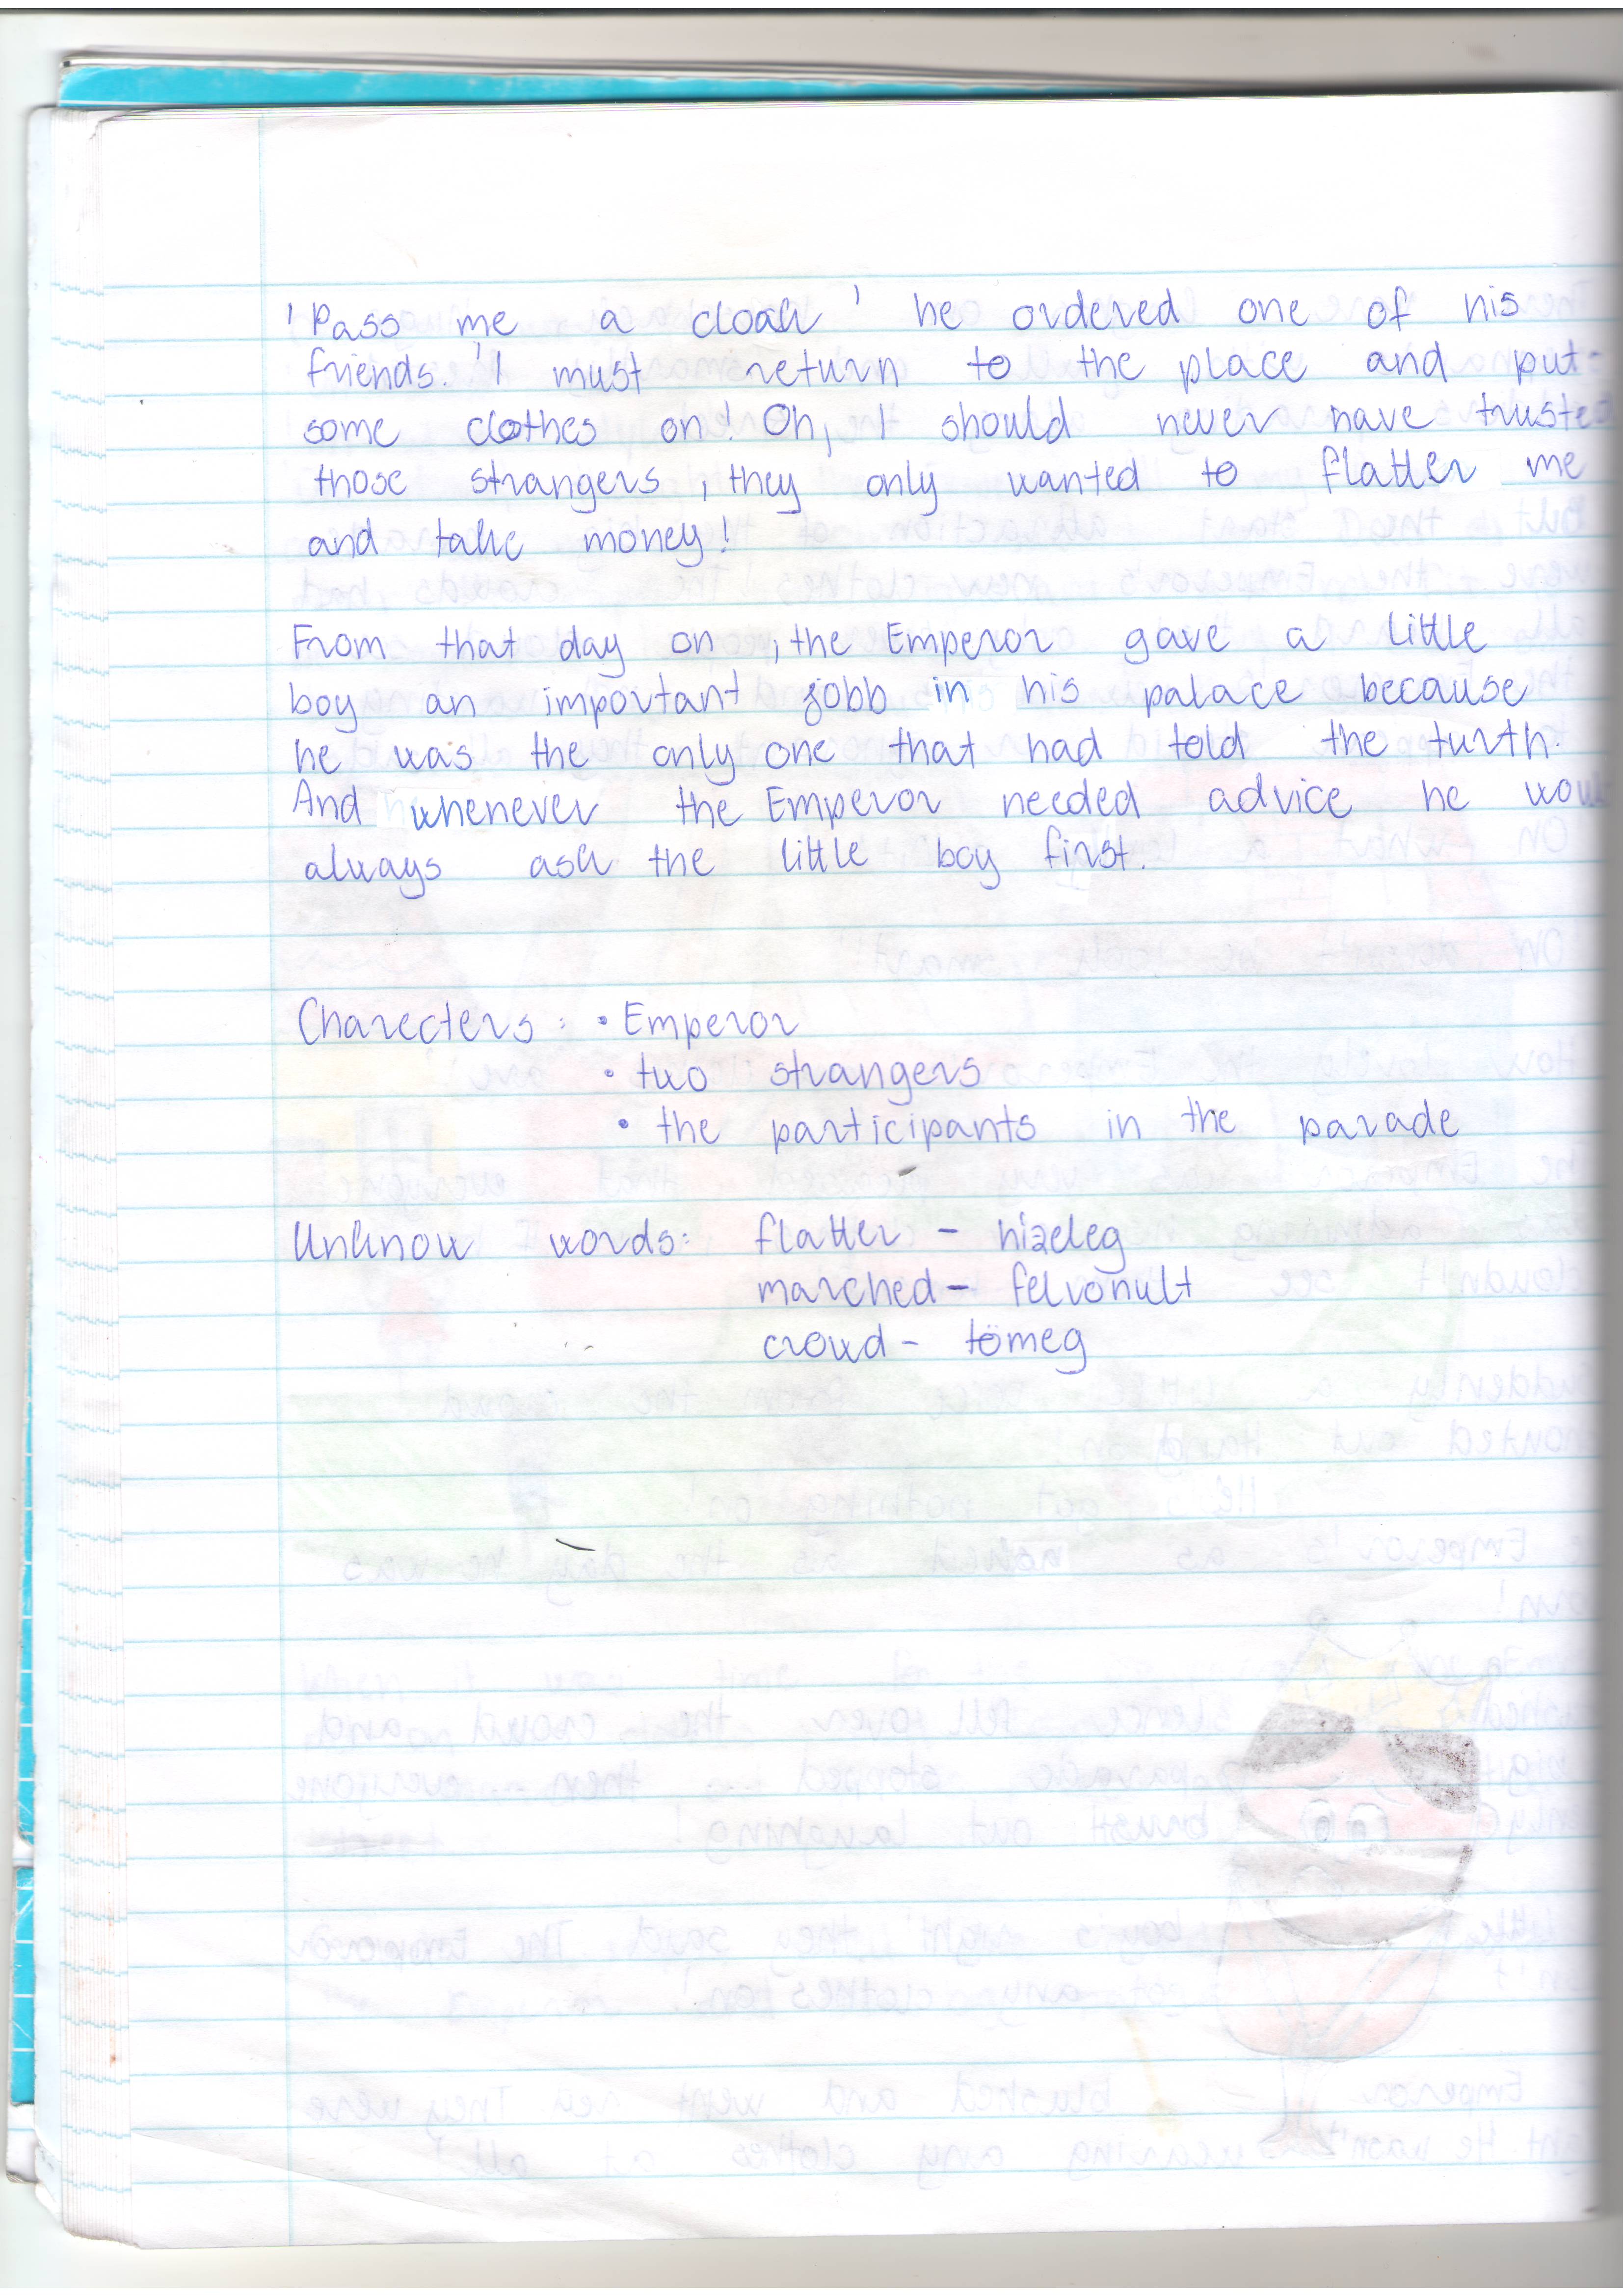 'Pass me a cloak' he ordered one of his
friends. 'I must return to the place and put
some clothes on! Oh, I should never have trusted
those strangers, they only wanted to flatter me
and take money!
From that day on, the Emperor gave a little
boy an important jobb in his palace because
he was the only one that had told the turth.
And whenever the Emperor needed advice he
always ask the little boy first.
Charecters: • Emperor
• two strangers
• the participants in the parade
Unknow words: flatter - hizeleg
marched - felvonult
crowd - tömeg